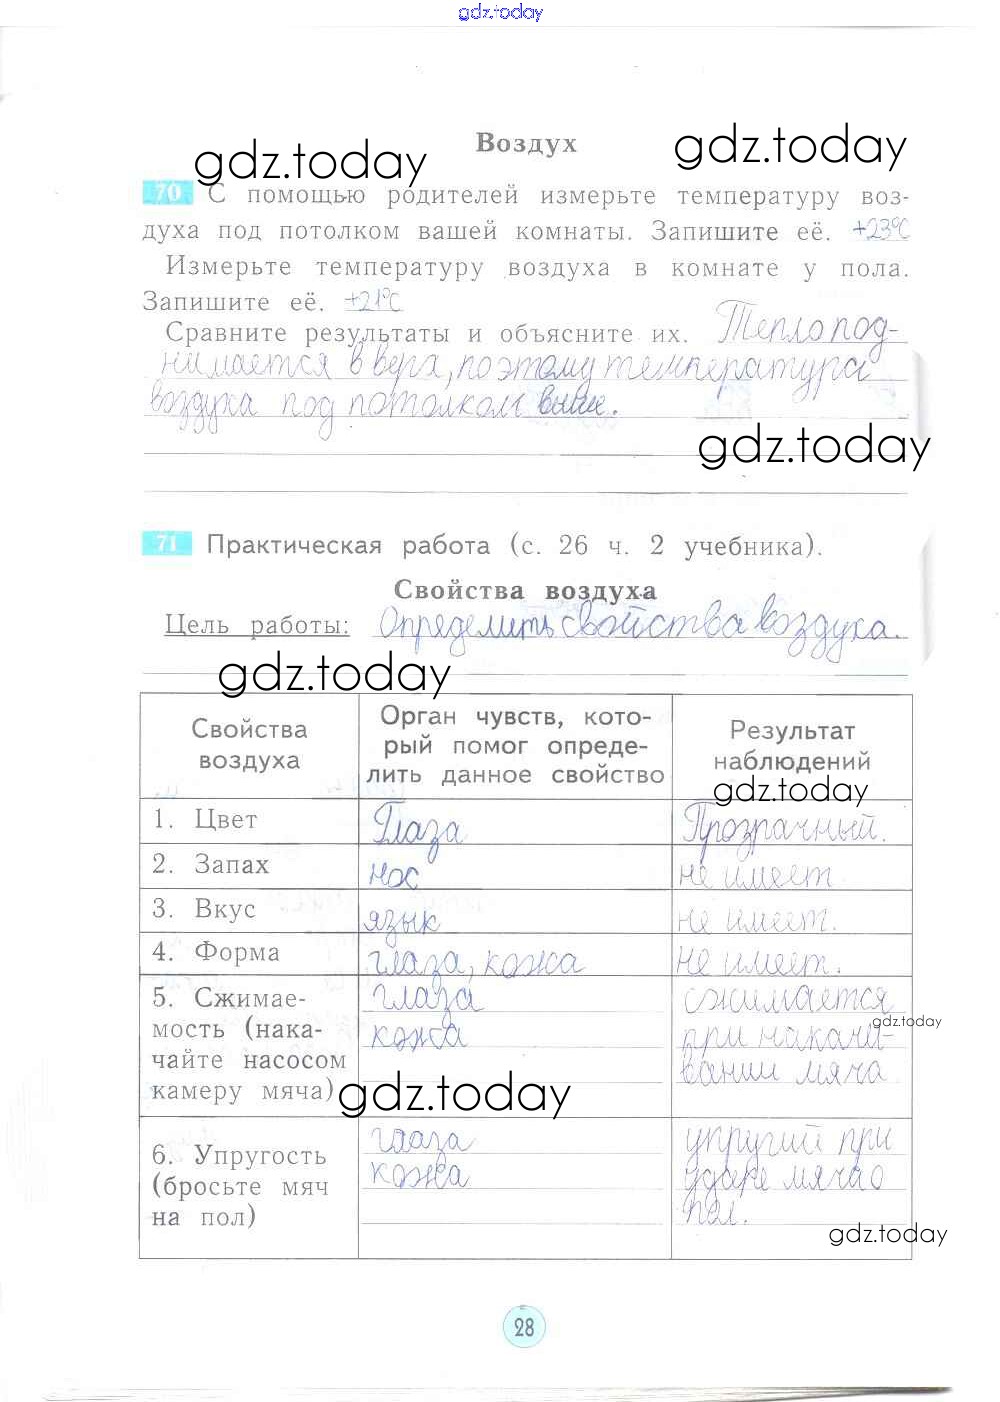 gdz.today
Воздух
gdz.today
gdz.today
70 С помощью родителей измерьте температуру воз-
духа под потолком вашей комнаты. Запишите её. +23°С
Измерьте температуру воздуха в комнате у пола.
Запишите её. +21°С
Сравните результаты и объясните их. Тепло под-
нимается вверх, поэтому температура
воздуха под потолком выше.
gdz.today
71 Практическая работа (с. 26 ч. 2 учебника).
Свойства воздуха
Цель работы: Определить свойства воздуха.
gdz.today
Свойства
воздуха
Орган чувств, кото-
рый помог опреде-
лить данное свойство
Результат
наблюдений
gdz.today
1. Цвет Глаза Прозрачный.
2. Запах нос не имеет.
3. Вкус язык не имеет.
4. Форма глаза, кожа не имеет.
5. Сжимае-
мость (нака-
чайте насосом
камеру мяча)
глаза
кожа
сжимается
при накачи-
вании мяча
gdz.today
gdz.today
6. Упругость
(бросьте мяч
на пол)
глаза
кожа
упругий при
ударе мяча о
пол.
gdz.today
28